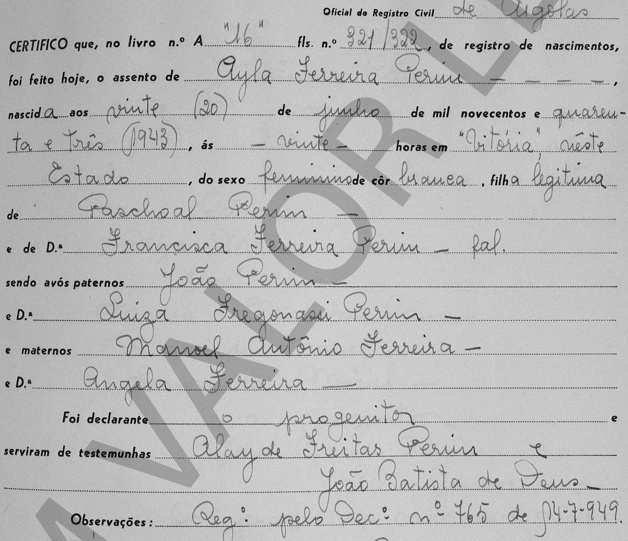 Oficial do Registro Civil de Argolas
CERTIFICO que, no livro n.º A "16" fls. n.º 321/322, de registro de nascimentos,
foi feito hoje, o assento de Ayla Ferreira Perim - - - -,
nascida aos vinte (20) de junho de mil novecentos e quaren-
ta e três (1943), ás - vinte - horas em "Vitória" nêste
Estado, do sexo feminino de côr branca, filha legitima
de Paschoal Perim -
e de D.ª Francisca Ferreira Perim - fal.
sendo avós paternos João Perim -
e D.ª Luiza Fregonasi Perim -
e maternos Manoel Antônio Ferreira -
e D.ª Angela Ferreira -
Foi declarante o progenitor e
serviram de testemunhas Alayde Freitas Perim e
João Batista de Deus -
Observações: Reg.º pelo Dec.º nº 765 de 14-7-949.
VALOR